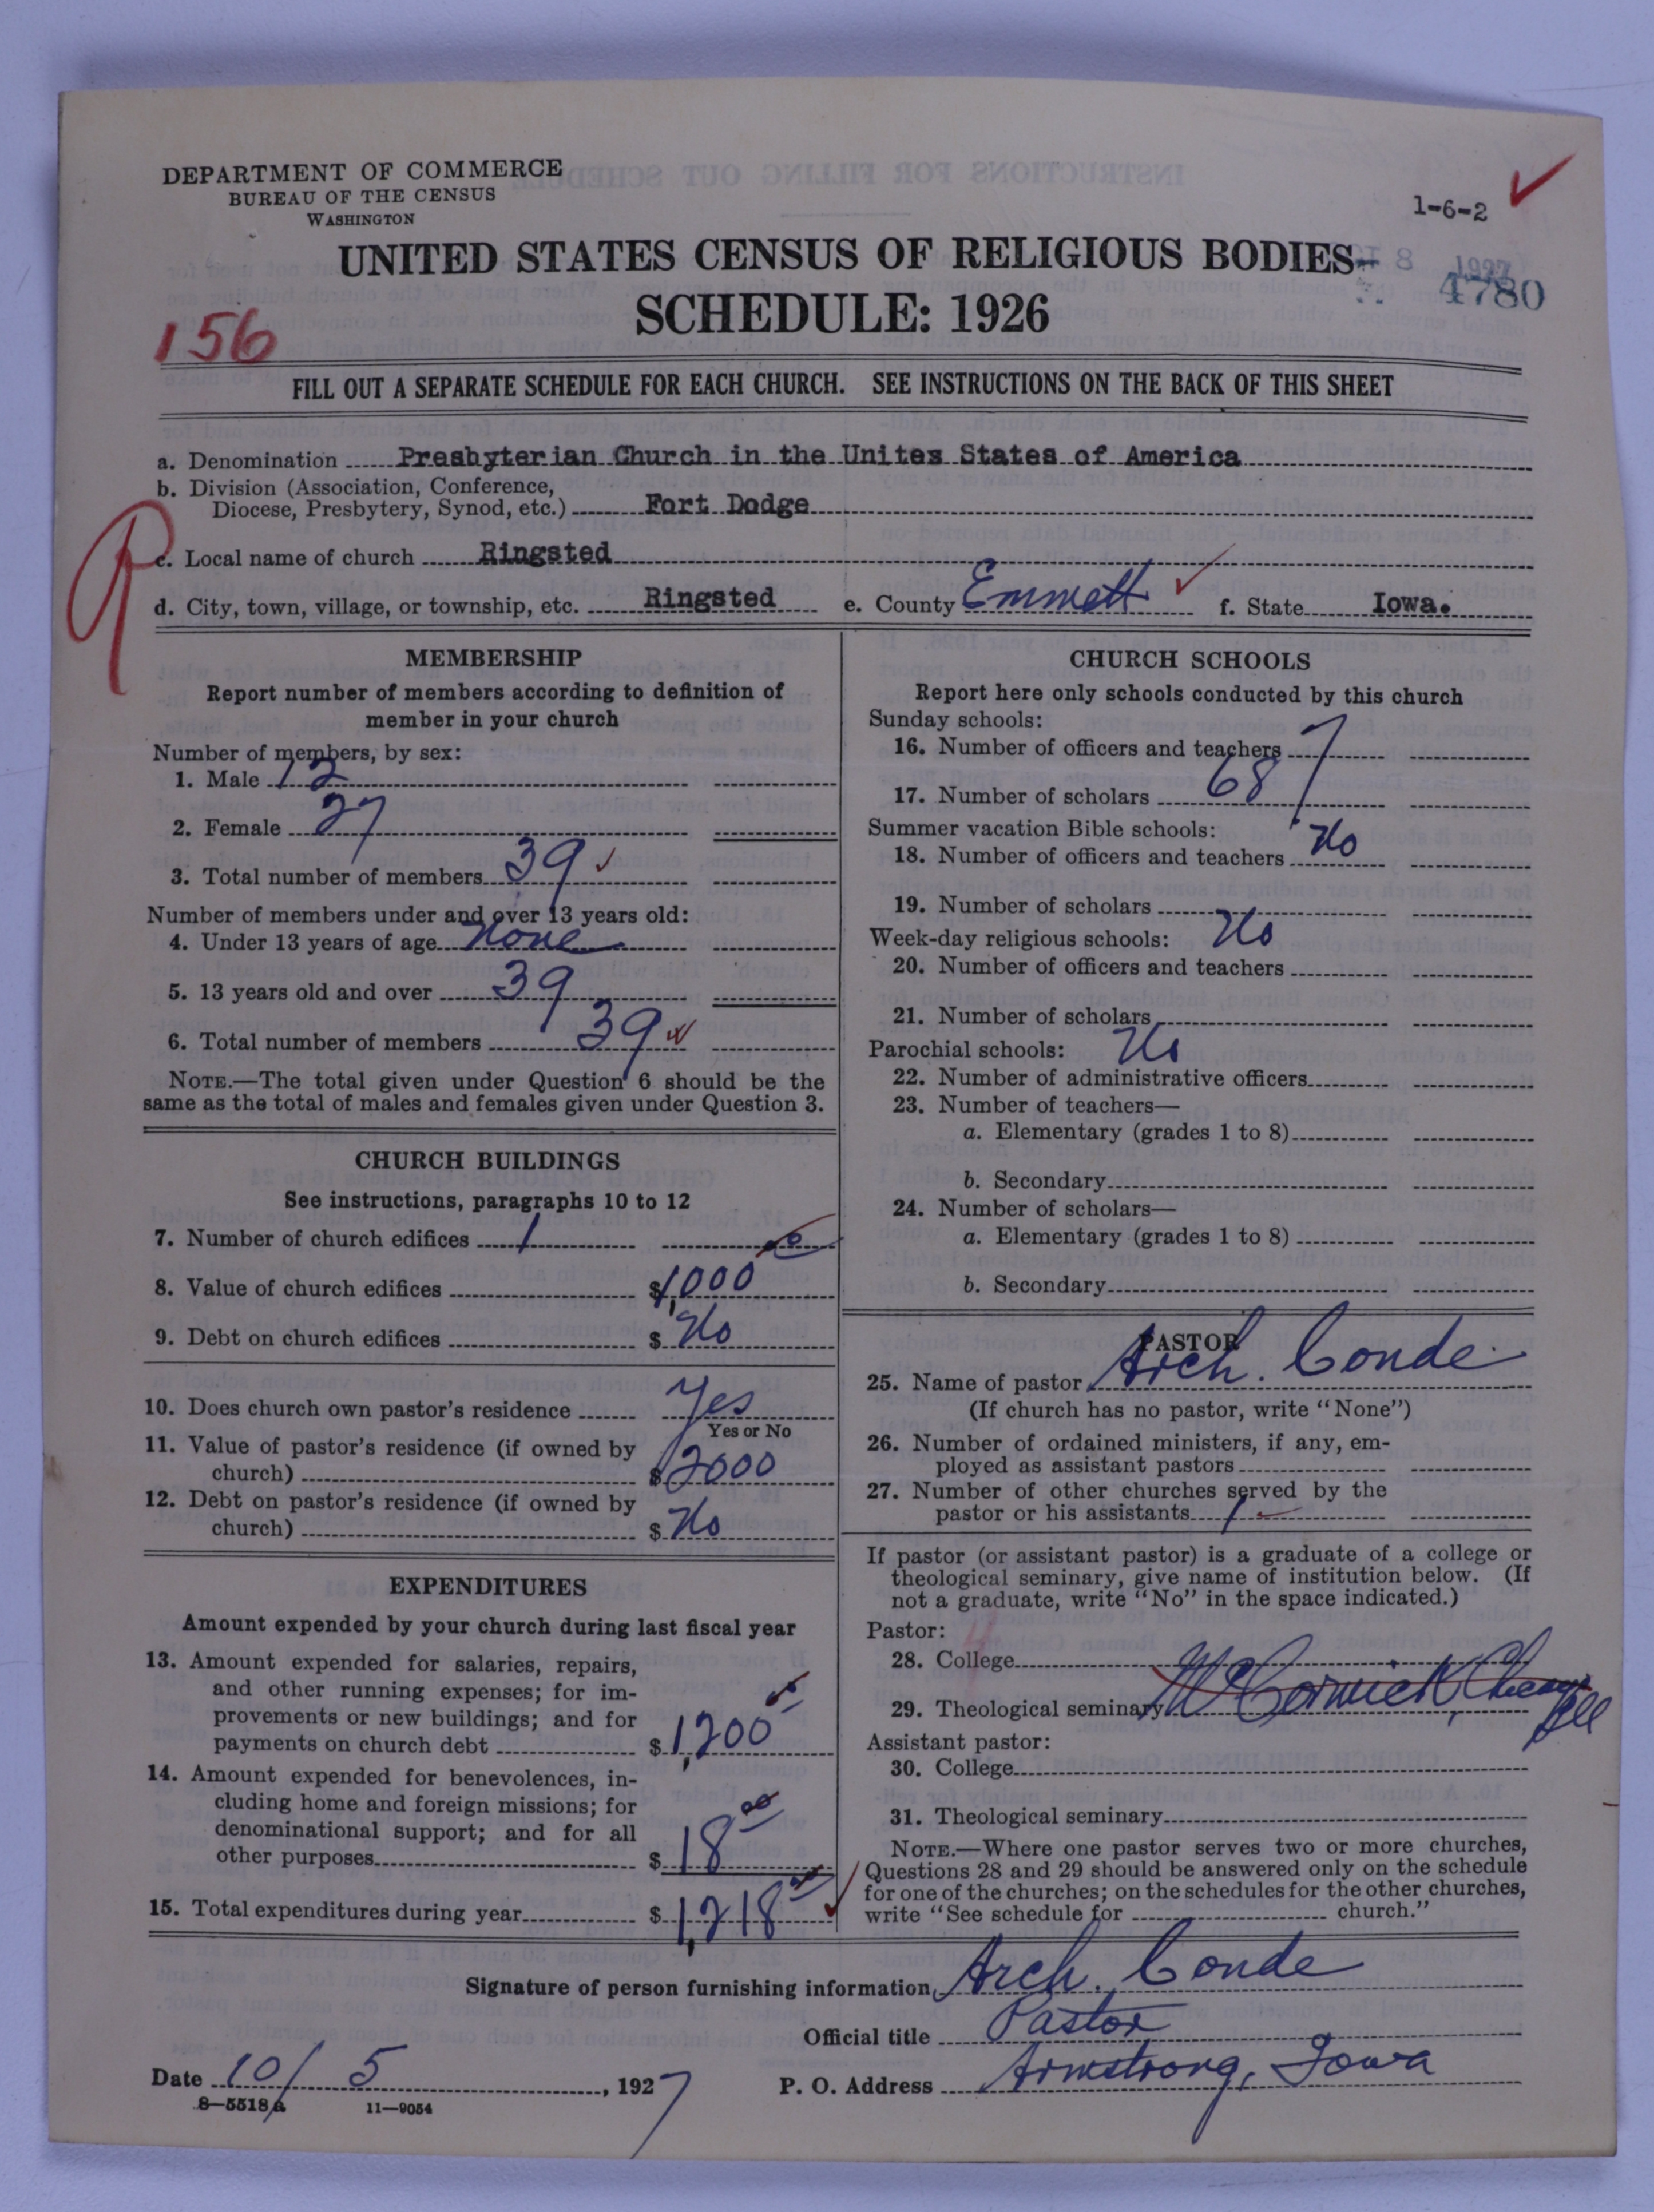 DEPARTMENT OF COMMERCE
BUREAU OF THE CENSUS
WASHINGTON
1-6-2
UNITED STATES CENSUS OF RELIGIOUS BODIES
8 1927
4780
SCHEDULE: 1926
156
FILL OUT A SEPARATE SCHEDULE FOR EACH CHURCH. SEE INSTRUCTIONS ON THE BACK OF THIS SHEET
a. Denomination Presbyterian Church in the Unites States of America
b. Division (Association, Conference,
Diocese, Presbytery, Synod, etc.) Fort Dodge
c. Local name of church Ringsted
d. City, town, village, or township, etc. Ringsted e. County Emmett f. State Iowa.
MEMBERSHIP
Report number of members according to definition of
member in your church
Number of members, by sex:
1. Male 12
2. Female 27
3. Total number of members 39
Number of members under and over 13 years old:
4. Under 13 years of age None
5. 13 years old and over 39
6. Total number of members 39
NOTE.—The total given under Question 6 should be the
same as the total of males and females given under Question 3.
CHURCH BUILDINGS
See instructions, paragraphs 10 to 12
7. Number of church edifices 1
8. Value of church edifices $1,000
9. Debt on church edifices $ No
10. Does church own pastor's residence Yes
Yes or No
11. Value of pastor's residence (if owned by
church) $2000
12. Debt on pastor's residence (if owned by
church) $ No
EXPENDITURES
Amount expended by your church during last fiscal year
13. Amount expended for salaries, repairs,
and other running expenses; for im-
provements or new buildings; and for
payments on church debt $1,200
14. Amount expended for benevolences, in-
cluding home and foreign missions; for
denominational support; and for all
other purposes $ 18 00
15. Total expenditures during year $ 1,218 00
CHURCH SCHOOLS
Report here only schools conducted by this church
Sunday schools:
16. Number of officers and teachers 7
17. Number of scholars 68
Summer vacation Bible schools: No
18. Number of officers and teachers
19. Number of scholars
Week-day religious schools: No
20. Number of officers and teachers
21. Number of scholars
Parochial schools: No
22. Number of administrative officers
23. Number of teachers—
a. Elementary (grades 1 to 8)
b. Secondary
24. Number of scholars—
a. Elementary (grades 1 to 8)
b. Secondary
PASTOR
25. Name of pastor Arch. Conde
(If church has no pastor, write "None")
26. Number of ordained ministers, if any, em-
ployed as assistant pastors
27. Number of other churches served by the
pastor or his assistants 1
If pastor (or assistant pastor) is a graduate of a college or
theological seminary, give name of institution below. (If
not a graduate, write "No" in the space indicated.)
Pastor:
28. College
29. Theological seminary McCormick, Chicago Ill
Assistant pastor:
30. College
31. Theological seminary
NOTE.—Where one pastor serves two or more churches,
Questions 28 and 29 should be answered only on the schedule
for one of the churches; on the schedules for the other churches,
write "See schedule for church."
Signature of person furnishing information Arch. Conde
Official title Pastor
Date 10/5, 1927 P. O. Address Armstrong, Iowa
8-5518a 11-9054